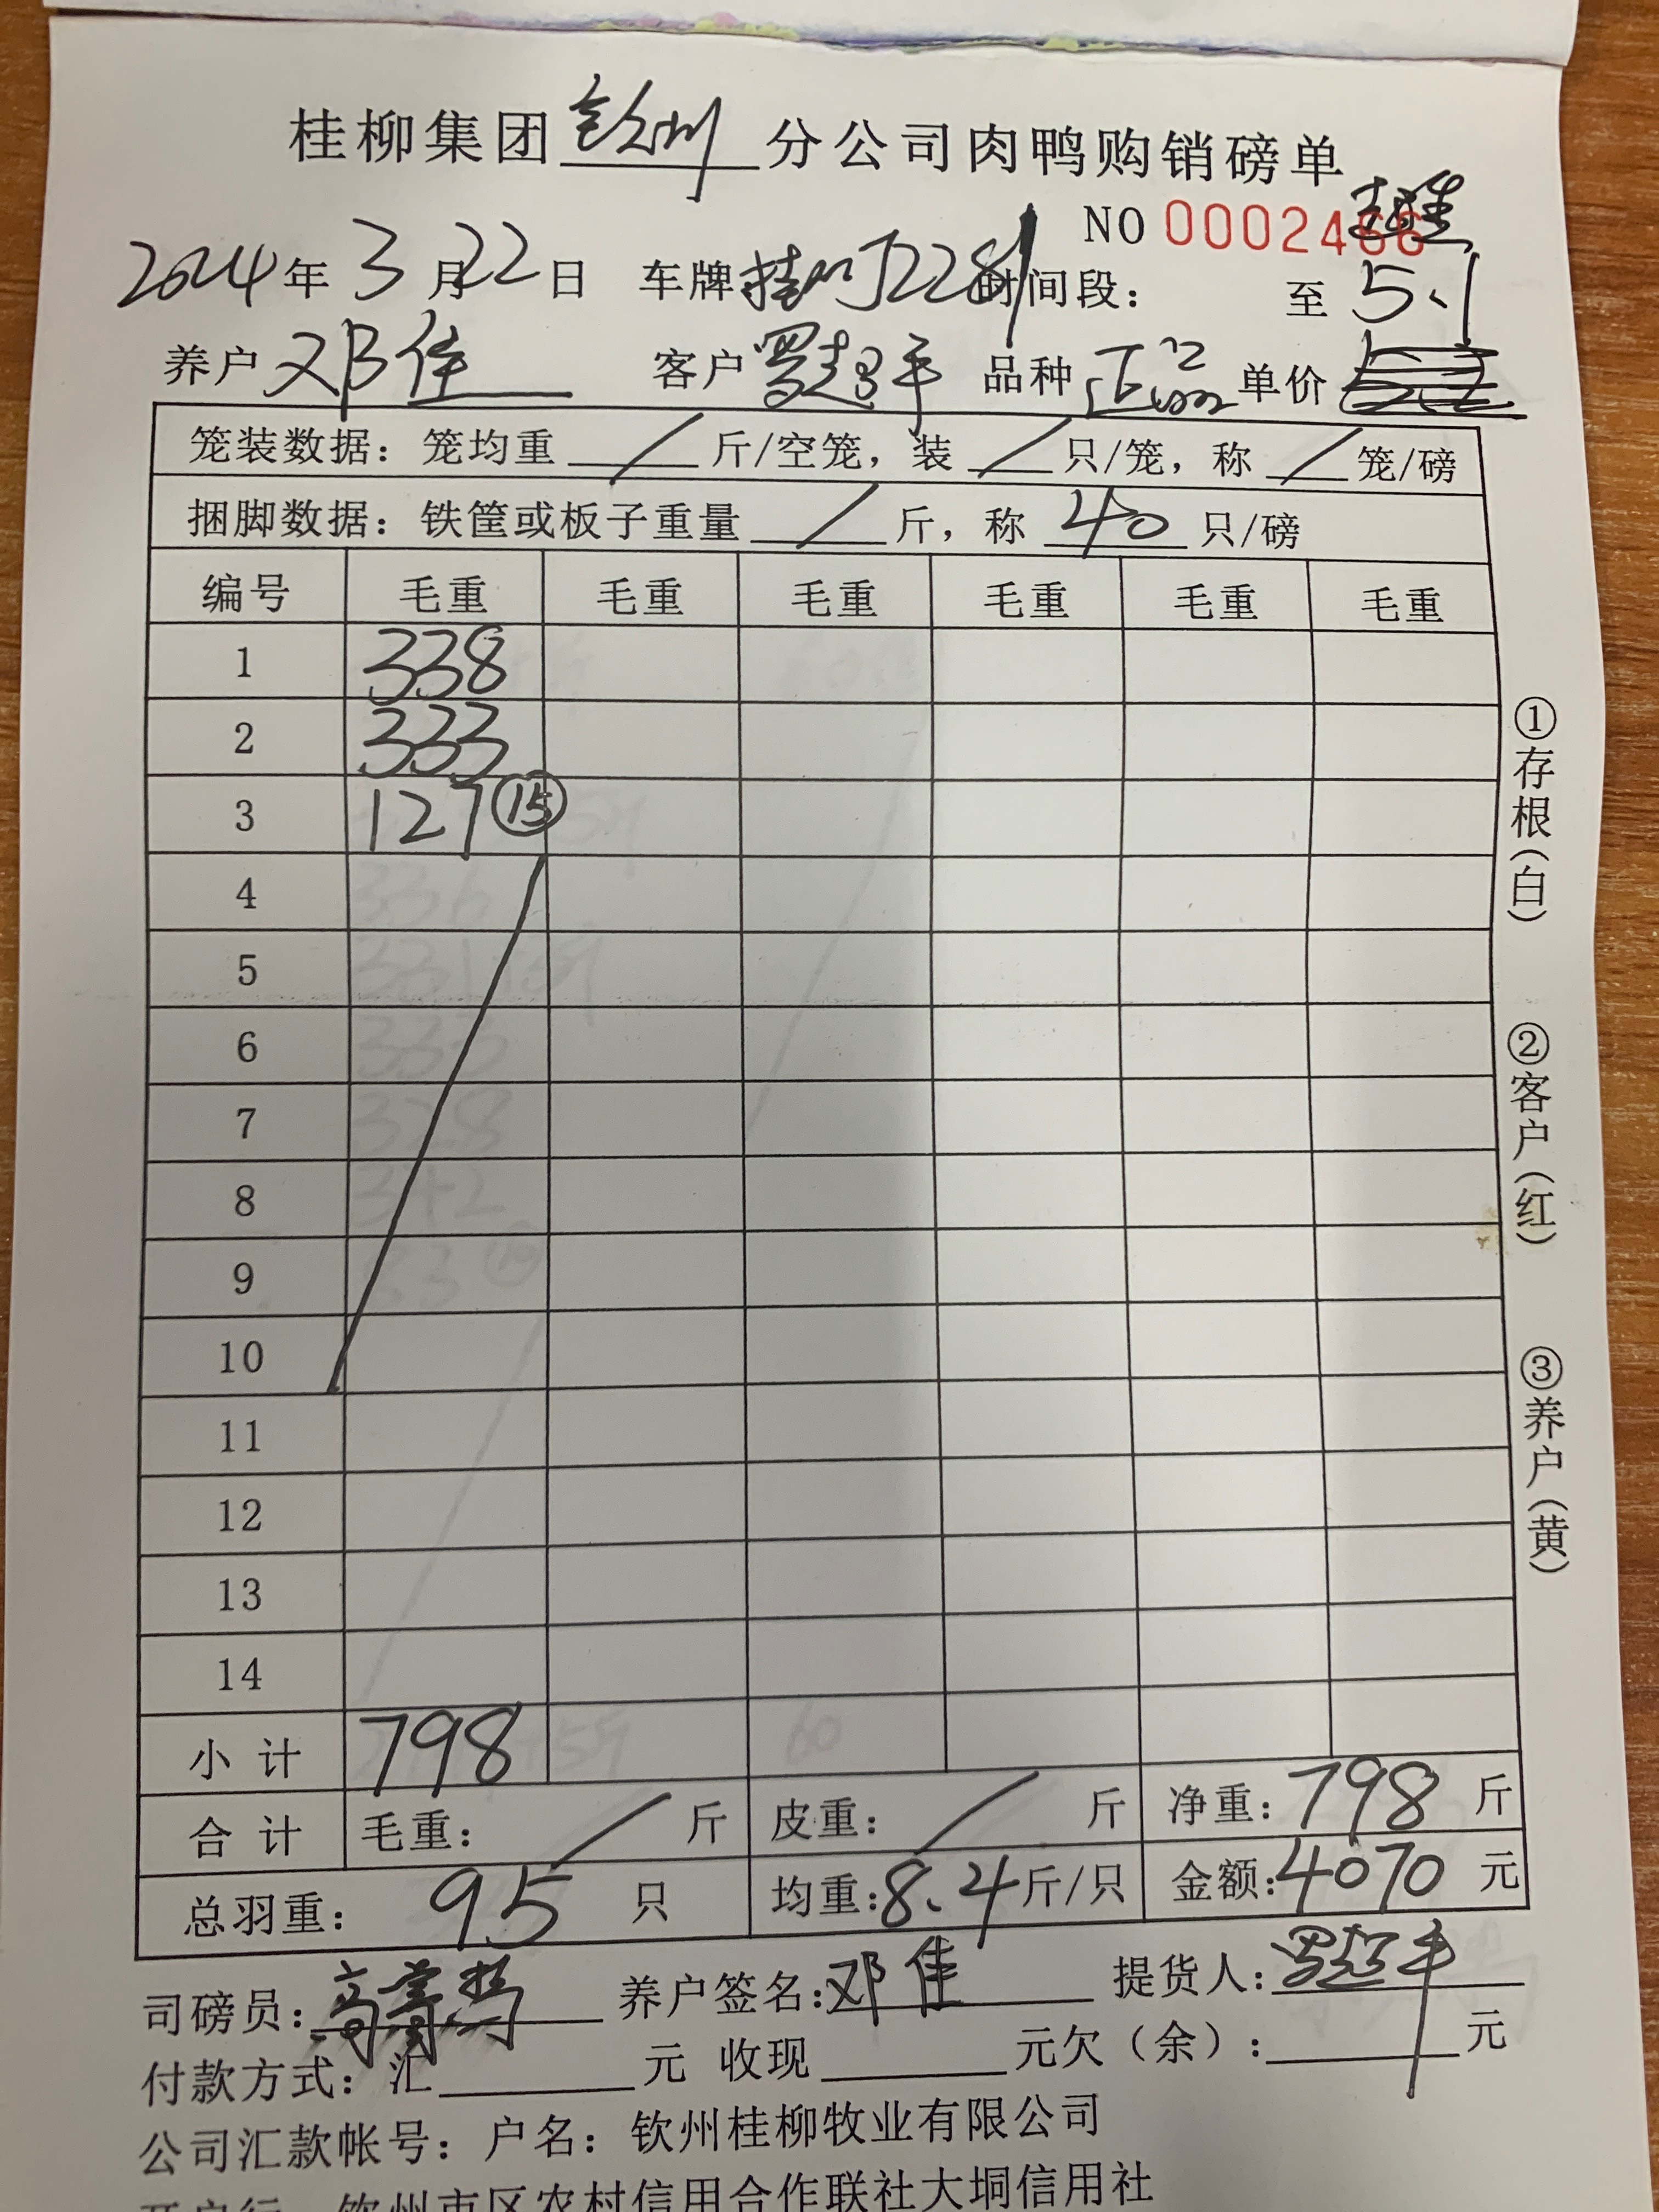 桂柳集团钦州分公司肉鸭购销磅单
NO 0002466
2024年3月22日 车牌桂 J2281 时间段: 至 5.1
养户 邓佳 客户 罗超 品种 正品 单价
笼装数据: 笼均重 / 斤/空笼, 装 / 只/笼, 称 / 笼/磅
捆脚数据: 铁筐或板子重量 / 斤, 称 40 只/磅
编号 毛重 毛重 毛重 毛重 毛重 毛重
1 338
2 333
3 127 ⑮
4
5
6
7
8
9
10
11
12
13
14
小计 798
合计 毛重: / 斤 皮重: / 斤 净重: 798 斤
总羽重: 95 只 均重: 8.4 斤/只 金额: 4070 元
司磅员: 高 养户签名: 邓佳 提货人: 罗超
付款方式: 汇 元 收现 元欠(余): 元
公司汇款帐号: 户名: 钦州桂柳牧业有限公司
开户行: 钦州市区农村信用合作联社大垌信用社
①存根(白)
②客户(红)
③养户(黄)